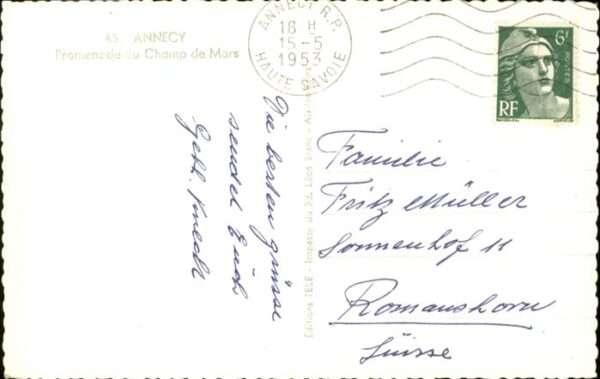 45. ANNECY
Promenade du Champ de Mars
ANNECY R.P.
18 H
15-5
1953
HAUTE SAVOIE
6F
POSTES
RF
Die besten grüsse
sendet Euch
Gebh. Knecht
Editions TELE - Impasse du
Familie
Fritz Müller
Sonnenhof 11
Romanshorn
Suisse